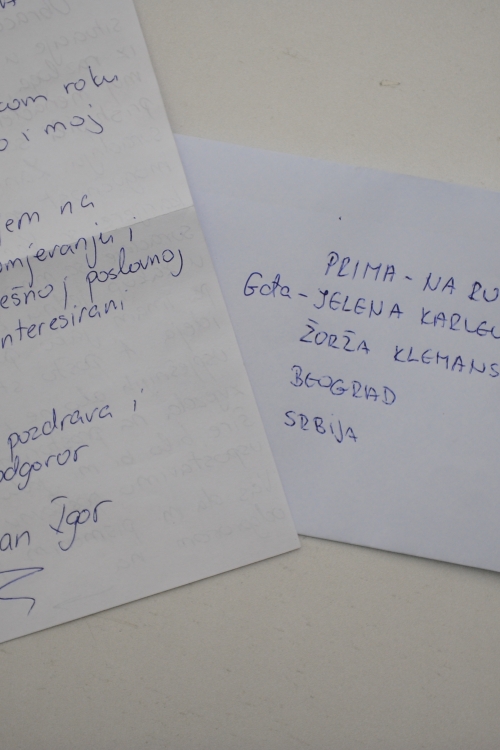 kom roku
o i moj
jem na
mjevanju i
ešnoj poslovnoj
nteresirani
pozdrava i
odgovor
an Igor
PRIMA - NA RU
Gđa - JELENA KARLEU
ŽORŽA KLEMANS
BEOGRAD
SRBIJA